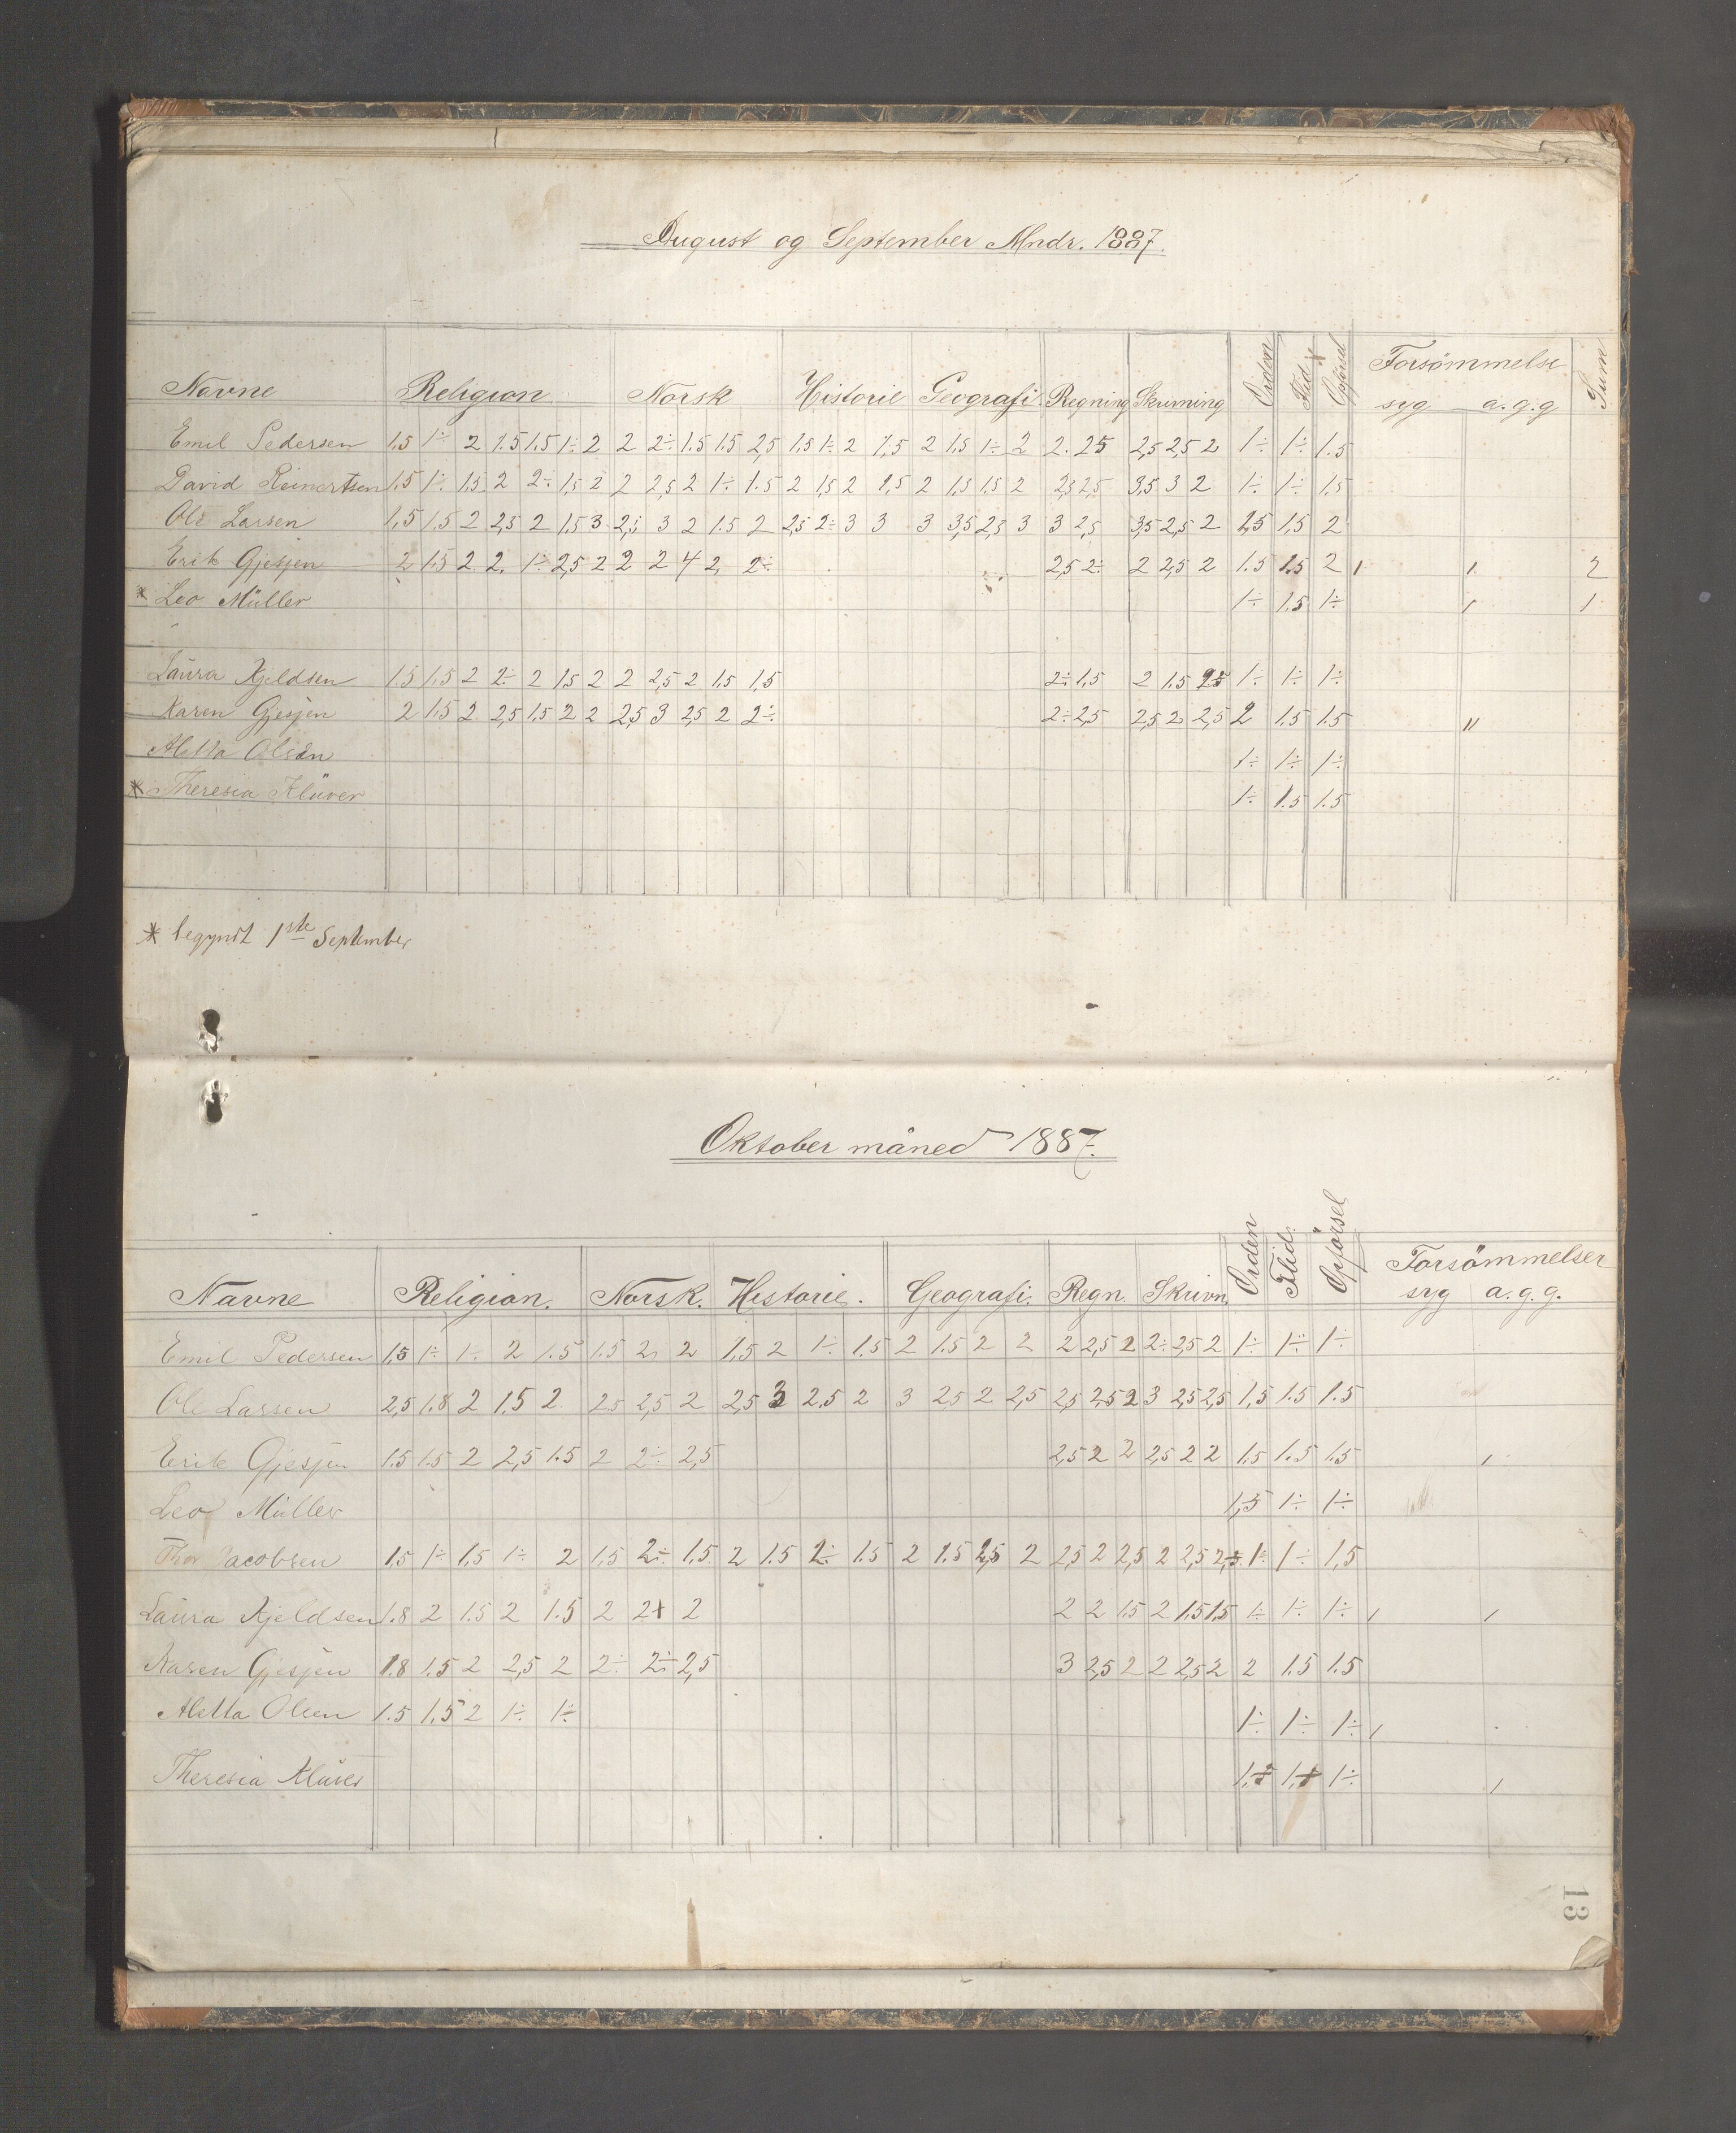 August og September Mndr. 1887.
Navne Religion Norsk Historie Geografi. Regning Skrivning Orden Flid Opförsel Forsömmelse Sum
syg a.g.g
Emil Pedersen 1.5 1÷ 2 1.5 1.5 1÷ 2 2 2÷ 1.5 1.5 2,5 1,5 1÷ 2 1,5 2 1,5 1÷ 2 2. 25 2,5 2,5 2 1÷ 1÷ 1.5
David Reinertsen 1.5 1÷ 1.5 2 2÷ 1,5 2 2 2,5 2 1÷ 1.5 2 1,5 2 1,5 2 1,5 1.5 2 2,5 2,5 3,5 3 2 1÷ 1÷ 1,5
Ole Larsen 1,5 1,5 2 2,5 2 1,5 3 2,5 3 2 1.5 2 2,5 2÷ 3 3 3 3,5 2,5 3 3 2,5 3,5 2,5 2 1,5 1,5 2
Erik Gjesjen 2 1.5 2 2. 1÷ 2,5 2 2 2 4 2, 2÷ 2,5 2÷ 2 2,5 2 1.5 1.5 2 1 1. 2
* Leo Müller 1÷ 1.5 1÷ 1 1
Laura Kjeldsen 1.5 1.5 2 2÷ 2 1,5 2 2 2,5 2 1,5 1,5 2÷ 1,5 2 1.5 2,5 1÷ 1÷ 1÷
Karen Gjesjen 2 1.5 2 2,5 1,5 2 2 2,5 3 2,5 2 2÷ 2÷ 2,5 2,5 2 2,5 2 1.5 1.5 "
Aletta Olsen 1÷ 1÷ 1÷
* Theresia Klüver 1÷ 1.5 1.5
* begyndt 1ste September
Oktober måned 1887.
Navne Religion. Norsk. Historie. Geografi. Regn. Skrivn. Orden Flid. Opförsel Forsömmelser
syg a.g.g.
Emil Pedersen 1,5 1÷ 1÷ 2 1.5 1.5 2, 2 1,5 2 1÷ 1.5 2 1.5 2 2 2 2,5 2 2÷ 2,5 2 1÷ 1÷ 1÷
Ole Larsen 2,5 1.8 2 1.5 2 2.5 2,5 2 2,5 3 2.5 2 3 2,5 2 2,5 2,5 2,5 2 3 2,5 2,5 1,5 1.5 1.5
Erik Gjesjen 1.5 1.5 2 2,5 1.5 2 2÷ 2,5 2,5 2 2 2,5 2 2 1.5 1.5 1.5 1
Leo Müller 1,5 1÷ 1÷
Thor Jacobsen 1.5 1÷ 1,5 1÷ 2 1,5 2÷ 1,5 2 1.5 2÷ 1.5 2 1.5 2,5 2 2,5 2 2,5 2 2,5 2,5 1÷ 1÷ 1,5
Laura Kjeldsen 1.8 2 1.5 2 1.5 2 2+ 2 2 2 1.5 2 1.5 1.5 1÷ 1÷ 1÷ 1 1
Karen Gjesjen 1.8 1.5 2 2,5 2 2÷ 2÷ 2,5 3 2,5 2 2 2,5 2 2 1.5 1.5
Aletta Olsen 1.5 1,5 2 1÷ 1÷ 1÷ 1÷ 1÷ 1
Theresia Klüver 1÷ 1
13